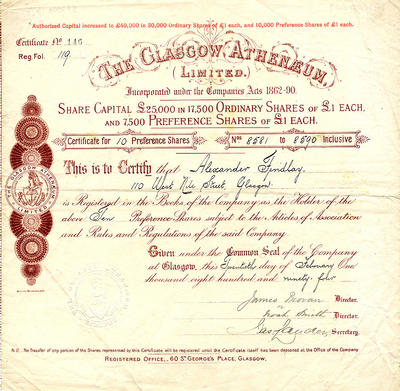 "Authorised Capital increased to £40,000 in 30,000 Ordinary Shares of £1 each, and 10,000 Preference Shares of £1 each.
Certificate No 146
Reg. Fol. 119
THE GLASGOW ATHENÆUM,
(LIMITED.)
Incorporated under the Companies Acts 1862-90.
SHARE CAPITAL £25,000 IN 17,500 ORDINARY SHARES OF £1 EACH,
AND 7,500 PREFERENCE SHARES OF £1 EACH.
Certificate for 10 Preference Shares
Nos 8581 to 8590 Inclusive
This is to Certify that Alexander Findlay,
110 West Nile Street, Glasgow
is Registered in the Books of the Company as the Holder of the
above Ten Preference Shares subject to the Articles of Association
and Rules and Regulations of the said Company.
Given under the Common Seal of the Company
at Glasgow, this Twentieth day of February One
thousand eight hundred and ninety four
James Director.
Smith Director.
Jas Lauder, Secretary.
THE GLASGOW ATHENÆUM
LIMITED
N.B. No Transfer of any portion of the Shares represented by this Certificate will be registered until the Certificate itself has been deposited at the Office of the Company
REGISTERED OFFICE, 60 ST GEORGE'S PLACE, GLASGOW,